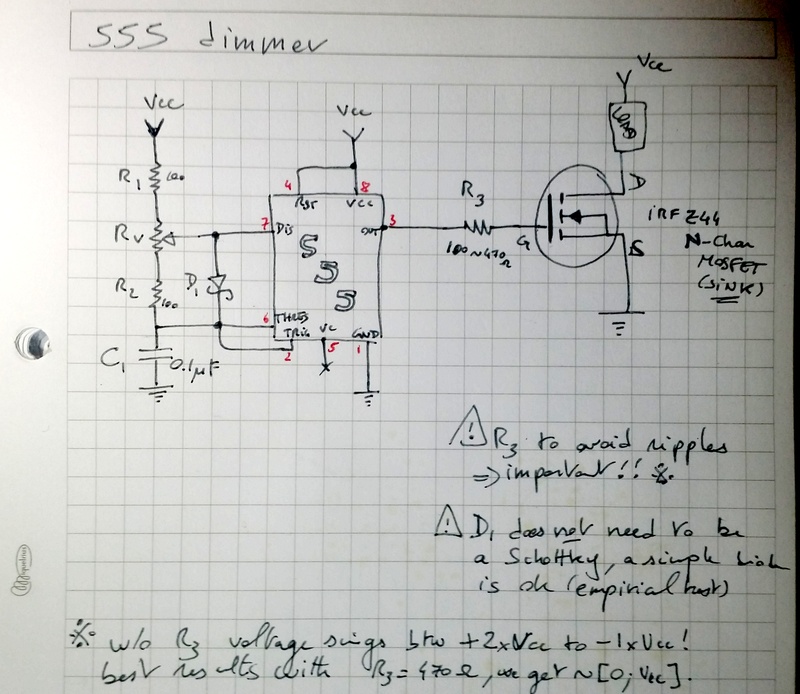 555 dimmer
Vcc
Vcc
Vcc
LOAD
R1 100
4
8
RST
VCC
R3
D
RV
7
Dis
3
out
100~470Ω
G
iRF Z44
S
N-Chan
MOSFET
(SiNK)
R2 100
D1
555
6
THRES
TRIG
VC
GND
2
5
1
C1 0.1µF
⚠ R3 to avoid ripples
=> important!! ※.
⚠ D1 does not need to be
a Schottky, a simple
is ok (empirical test)
※ w/o R3 voltage swings btw +2xVcc to -1xVcc!
best results with R3 = 470Ω, we get ~[0; Vcc].